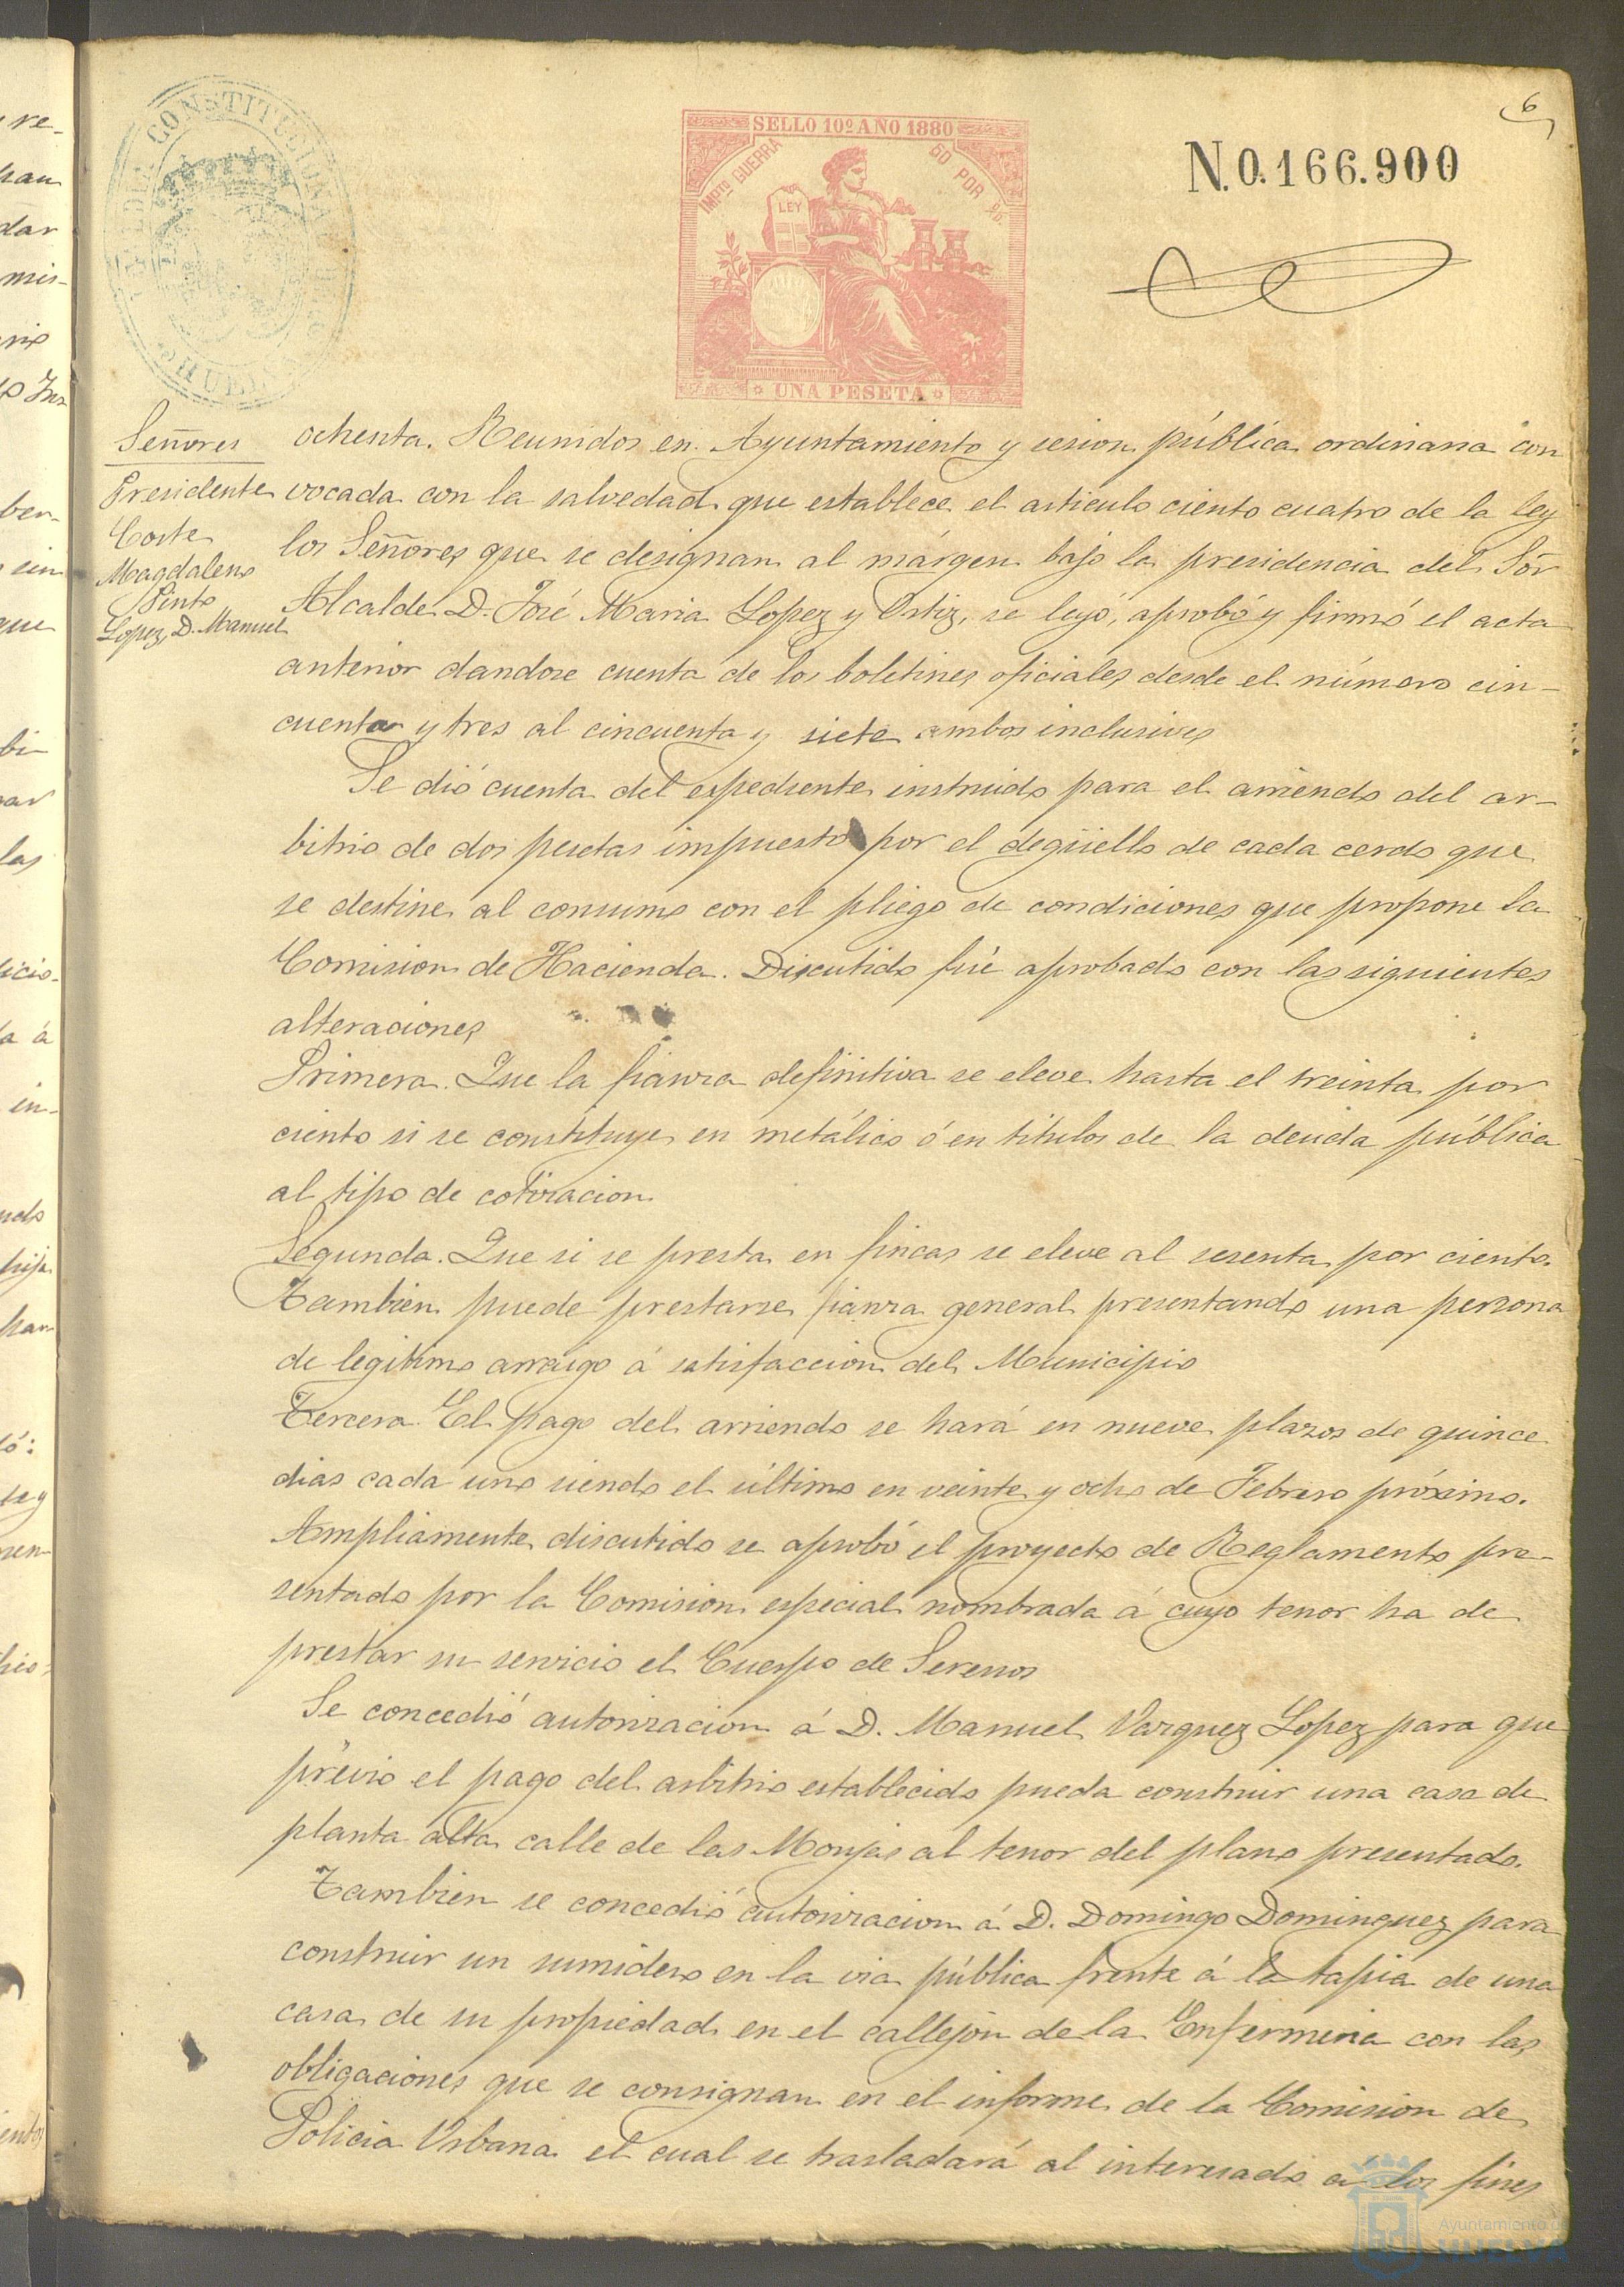 6
ALCALDIA CONSTITUCIONAL DE HUELVA
SELLO 10º AÑO 1880
IMPTO GUERRA 50 POR %
LEY
UNA PESETA
N.0.166.900
Señores
Presidente
Coste
Magdaleno
Pinto
Lopez, D. Manuel
ochenta. Reunidos en Ayuntamiento y sesion pública ordinaria con
vocada con la salvedad que establece el articulo ciento cuatro de la ley
los Señores que se designan al márgen bajo la presidencia del Sôr
Alcalde D. José Maria Lopez y Ortiz, se leyó, aprobó y firmó el acta
anterior dandose cuenta de los boletines oficiales desde el número cin-
cuenta y tres al cincuenta y siete ambos inclusives
Se dió cuenta del espediente instruido para el arriendo del ar-
bitrio de dos pesetas impuesto por el degüello de cada cerdo que
se destine al consumo con el pliego de condiciones que propone la
Comision de Hacienda. Discutido fué aprobado con las siguientes
alteraciones
Primera. Que la fianza definitiva se eleve hasta el treinta por
ciento si se constituye en metálico ó en titulos de la deuda pública
al tipo de cotizacion
Segunda. Que si se presta en fincas se eleve al sesenta por ciento.
Tambien puede prestarse fianza general presentando una persona
de legitimo arraigo á satisfaccion del Municipio
Tercera. El pago del arriendo se hará en nueve plazos de quince
dias cada uno siendo el último en veinte y ocho de Febrero próximo.
Ampliamente discutido se aprobó el proyecto de Reglamento pre-
sentado por la Comision especial nombrada á cuyo tenor ha de
prestar su servicio el Cuerpo de Serenos
Se concedió autorizacion á D. Manuel Vazquez Lopez para que
prévio el pago del arbitrio establecido pueda construir una casa de
planta alta calle de las Monjas al tenor del plano presentado.
Tambien se concedió autorizacion á D. Domingo Dominguez para
construir un sumidero en la via pública frente á la tapia de una
casa de su propiedad en el callejon de la Enfermeria con las
obligaciones que se consignan en el informe de la Comision de
Policia Urbana el cual se trasladará al interesado á los fines
Ayuntamiento de
HUELVA